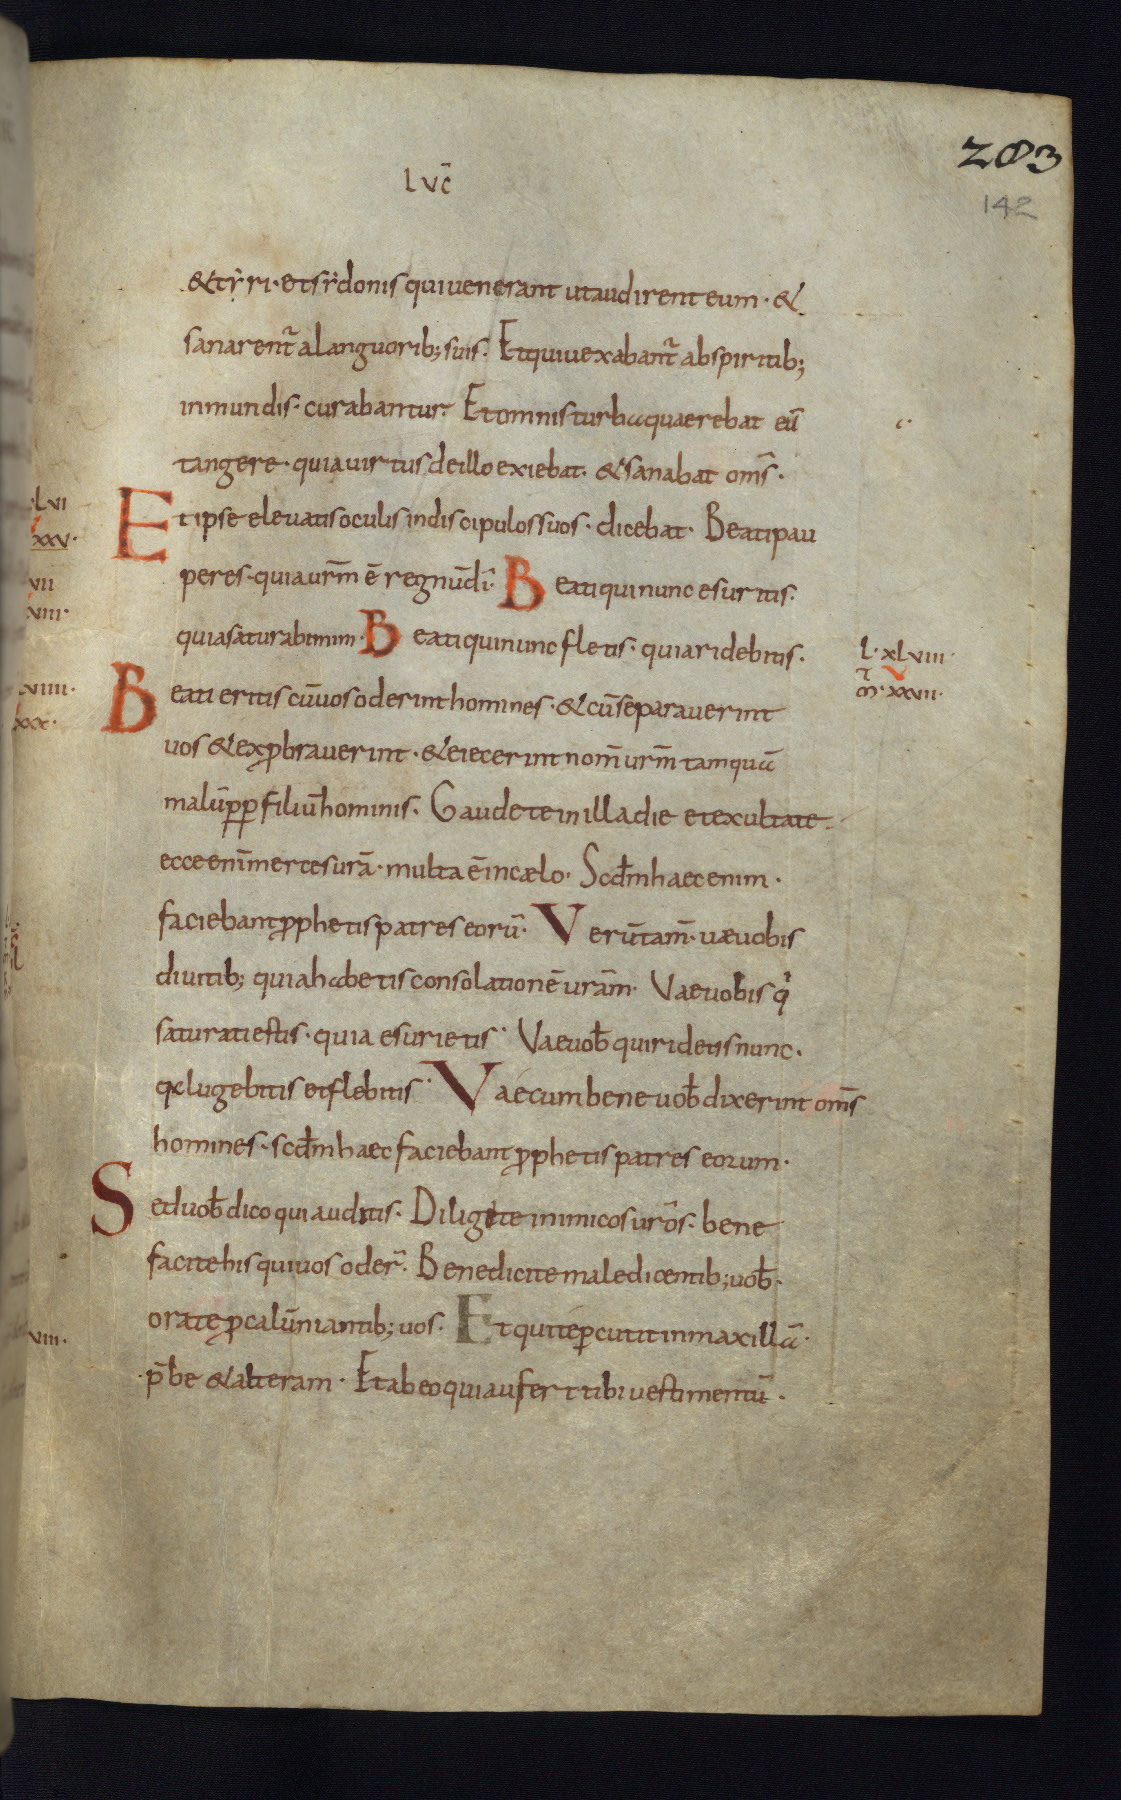 203
142
LVC̄
&tẏri· etsẏdonis quiuenerant utaudirent eum· &
sanarent̄ alanguorib; suis· Etquiuexabant̄ abspiritib;
inmundis· curabantur· Etomnisturba quaerebat eū
tangere· quiauirtus deillo exiebat· & sanabat om̄s·
Etipse eleuatis oculis indiscipulos suos· dicebat· Beatipau
peres· quia ur̄m ē regnūdī· Beatiquinunc esuritis·
quiasaturabimini· Beatiquinunc fletis· quiaridebitis·
Beati eritis cūuos oderint homines· & cūseparauerint
uos & exp̱brauerint· & eiecerint nom̄ ur̄m tamquā
malūp̱p̱ filiūhominis· Gaudete inilladie etexultate·
ecceenim̄ merces urā· multa ē incælo· Scd̄m haec enim·
faciebant p̱phetis patres eorū· Verūtam̄· uæuobis
diuitib; quiahabetis consolationē urām· Vaeuobis qⁱ
saturatiestis· quia esurietis· Vaeuob̄ quiridetis nunc·
qa lugebitis etflebitis· Vaecumbene uob̄ dixerint om̄s
homines· scd̄m haec faciebant p̱phetis patres eorum·
Seduob̄ dico quiauditis· Diligite inimicos urōs· bene
facitehis quiuos oder̄· Benedicite maledicentib; uob̄·
orate p̱ calūniantib; uos· Et quite p̱cutit inmaxillā·
p̄be & alteram· Etabeo quiaufert tibi uestimentū·
·LVI
XXV·
VII
XIII·
VIIII·
XXX·
VIII·
L· XLVIII·
m̄· XXVII·